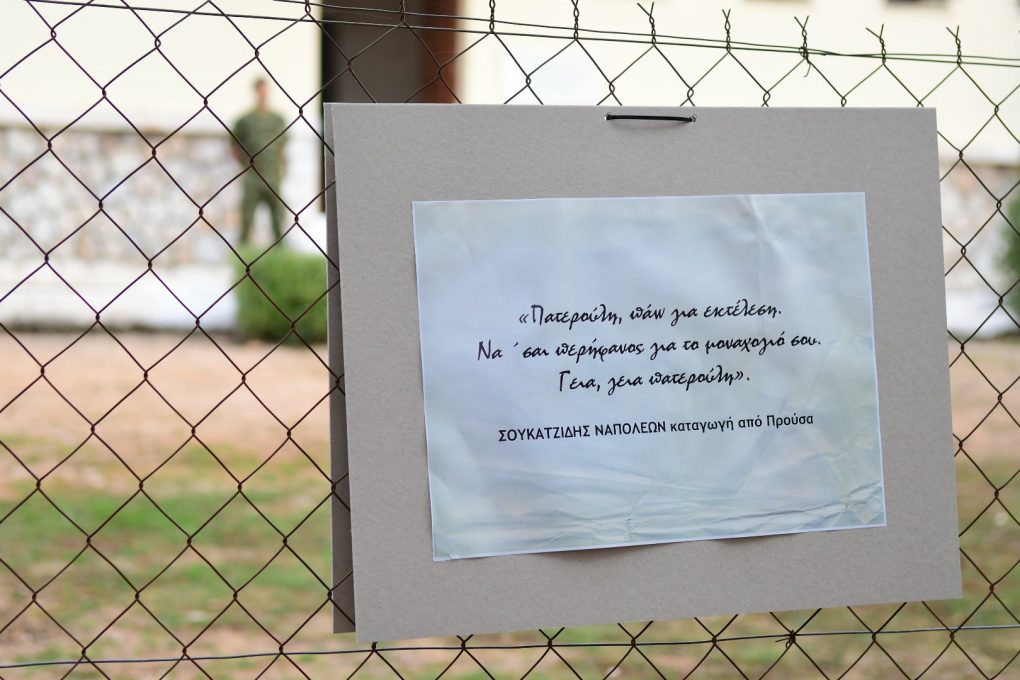 «Πατερούλη, πάω για εκτέλεση.
Να ΄σαι περήφανος για το μοναχογιό σου.
Γεια, γεια πατερούλη».
ΣΟΥΚΑΤΖΙΔΗΣ ΝΑΠΟΛΕΩΝ καταγωγή από Προύσα